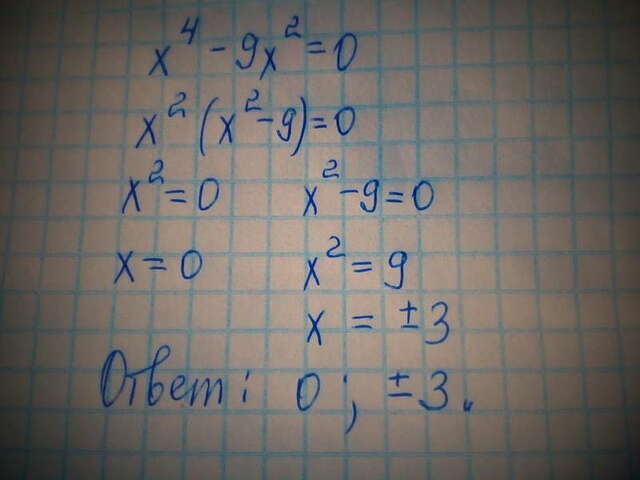 x⁴ - 9x² = 0
x² (x² - 9) = 0
x² = 0    x² - 9 = 0
x = 0    x² = 9
x = ±3
Ответ: 0; ±3.